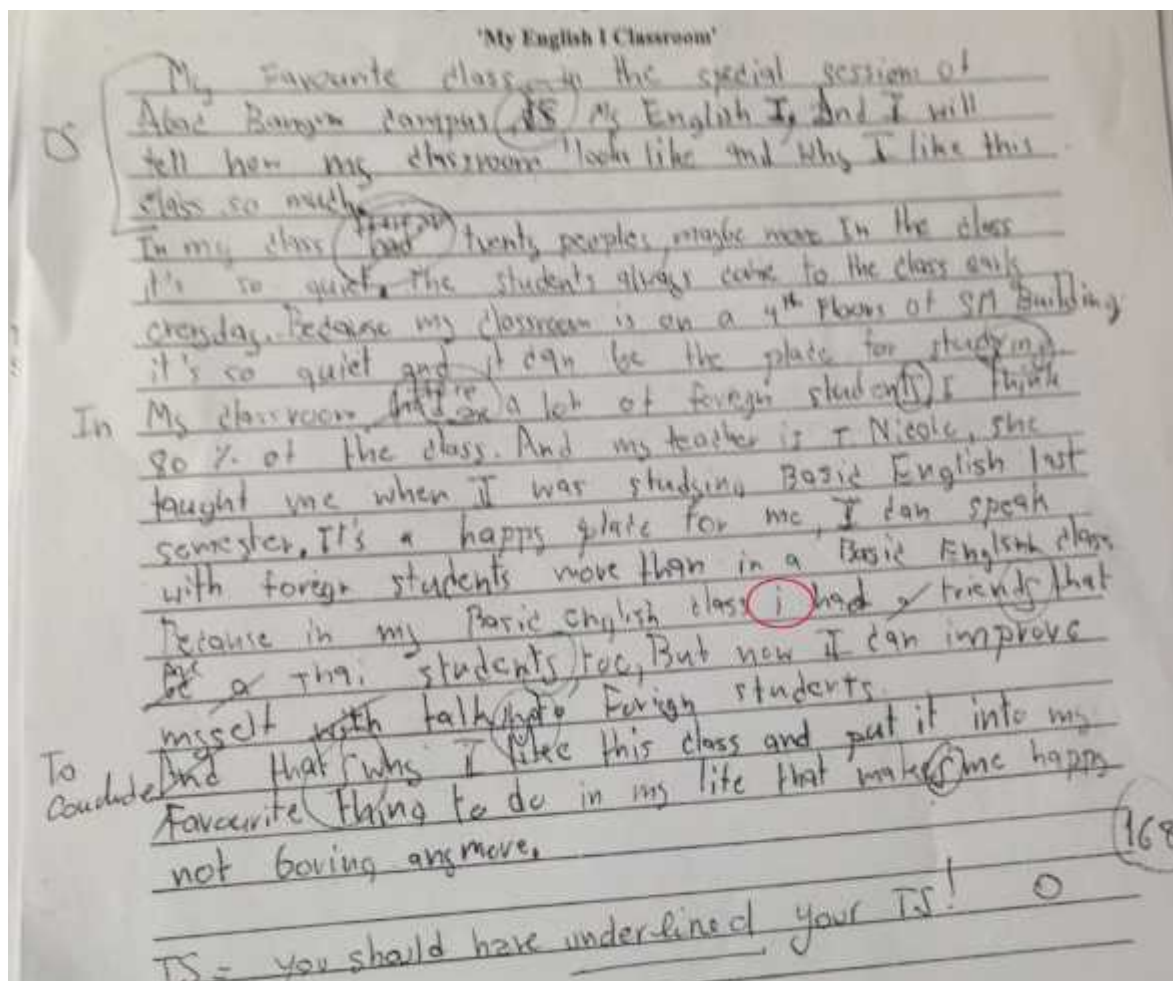 'My English I Classroom'
My Favourite class in the special session of
Abac Bangna campus is My English I, And I will
TS tell how my classroom looks like and why I like this
class so much.
In my class had twenty peoples, maybe more In the class
it's so quiet, The students always come to the class early
everyday. Because my classroom is on a 4th Floors of SM Building
it's so quiet and it can be the place for studying
In My classroom a lot of foreign students I think
80 % of the class. And my teacher is T Nicole, she
taught me when I was studying Basic English last
semester. It's a happy place for me, I can speak
with foreign students more than in a Basic English class
Because in my Basic English class i had a friends that
be a Thai students too, But now I can improve
myself with talk Forign students.
To Conclude And that why I like this class and put it into my
Favourite Thing to do in my life that makes me happy
not boring anymore.
168
TS = you should have underlined your TS!